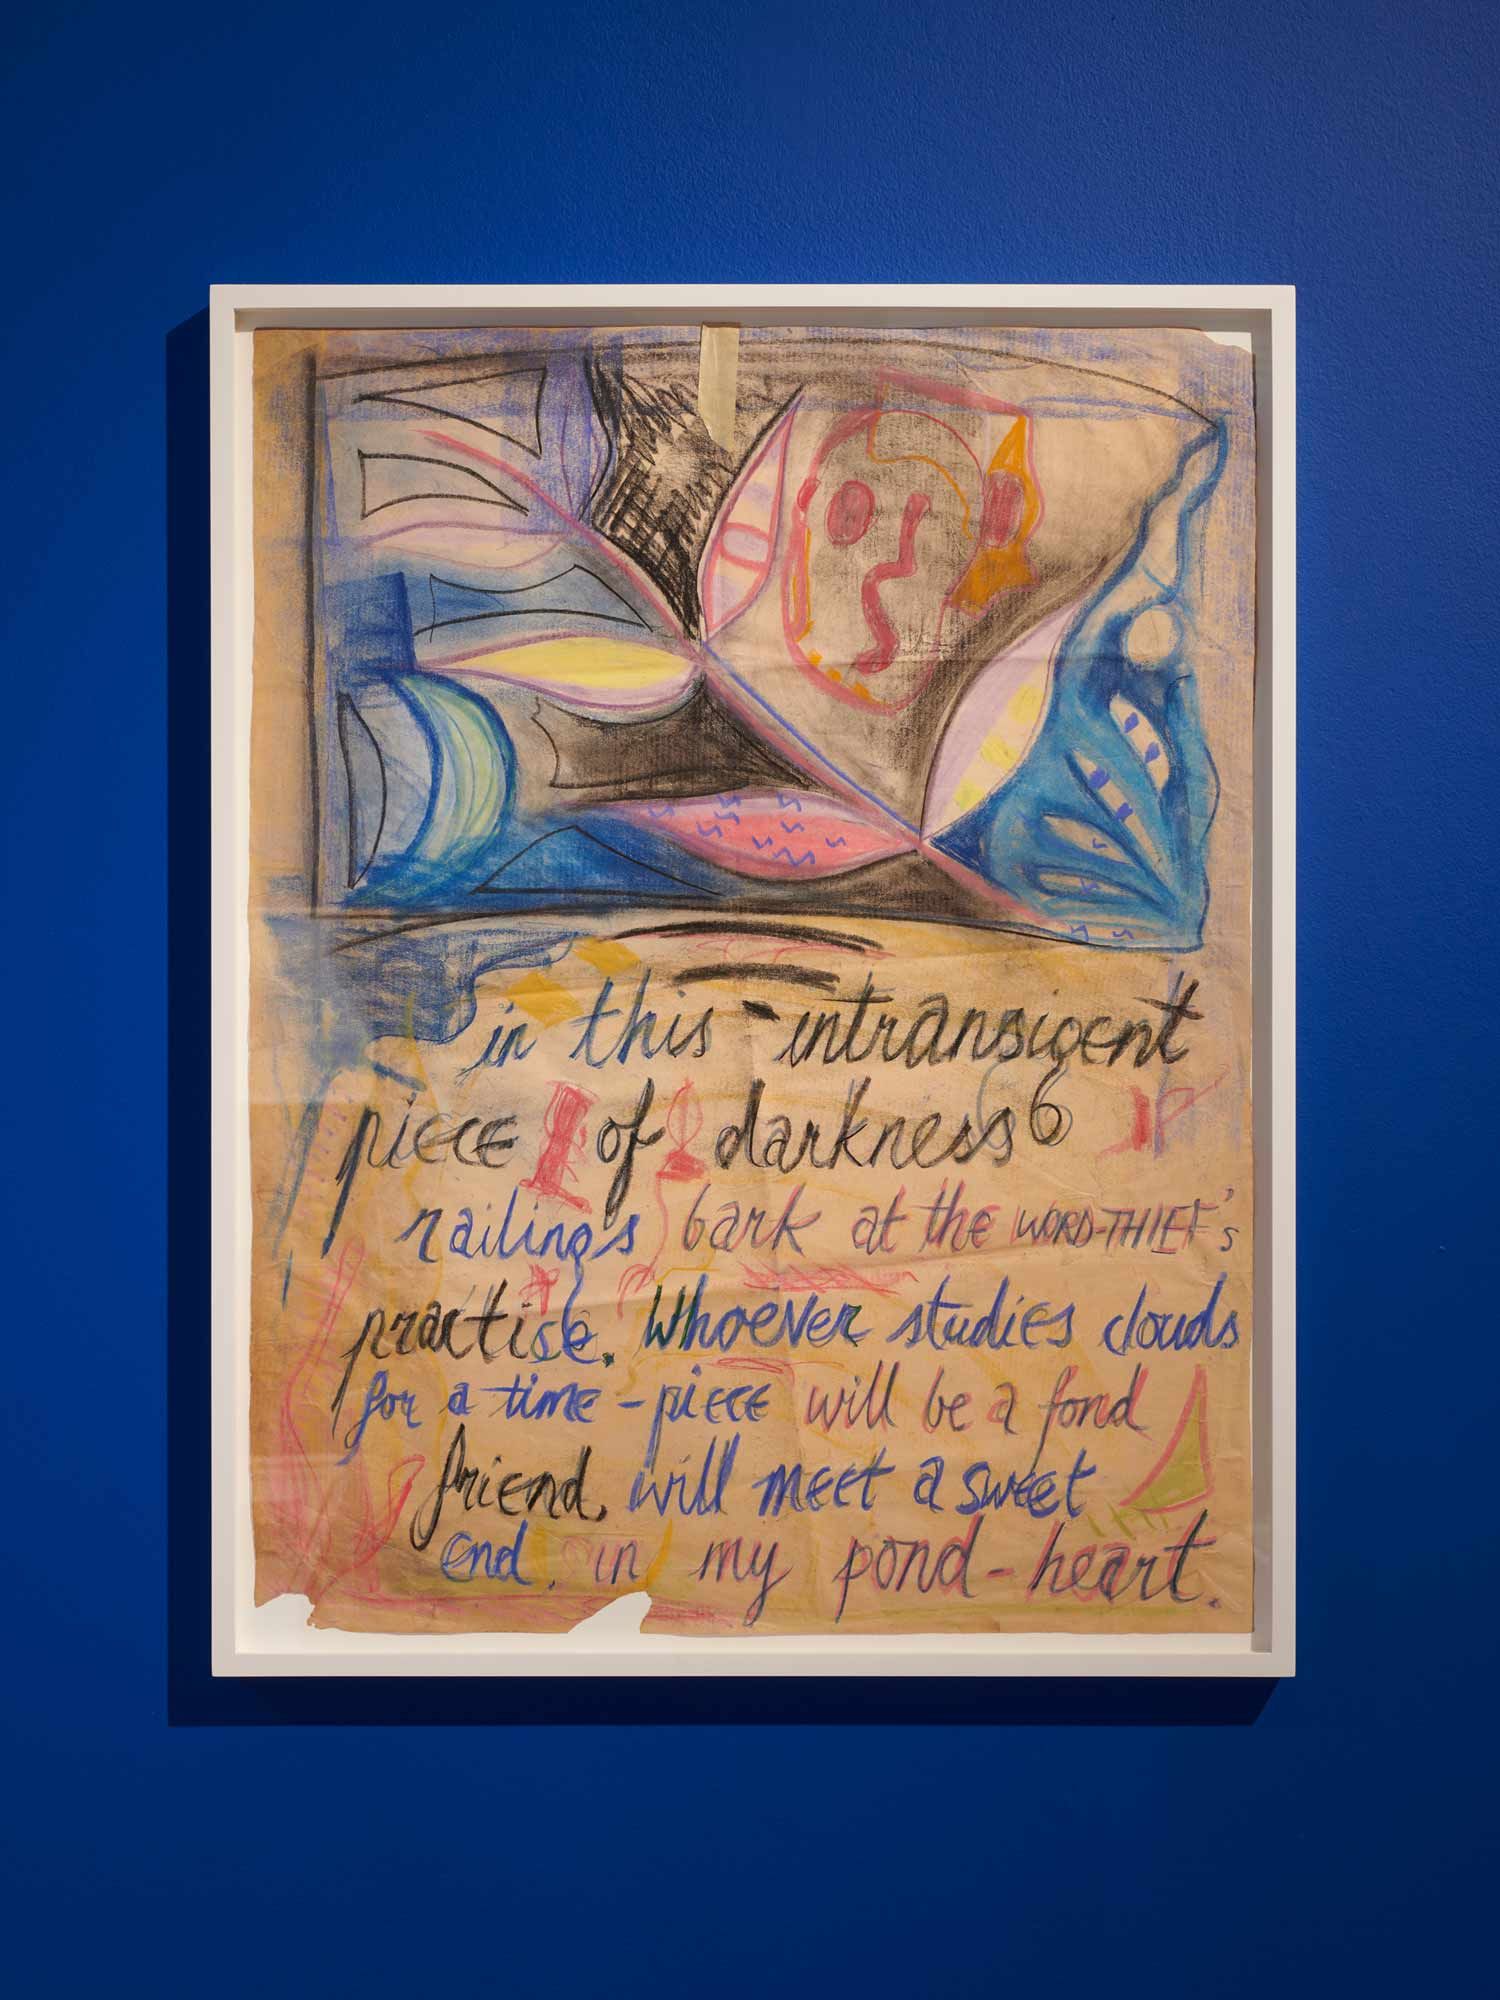 in this intransigent
piece of darkness
railings bark at the WORD-THIEF's
practise. Whoever studies clouds
for a time-piece will be a fond
friend, will meet a sweet
end. in my pond-heart.